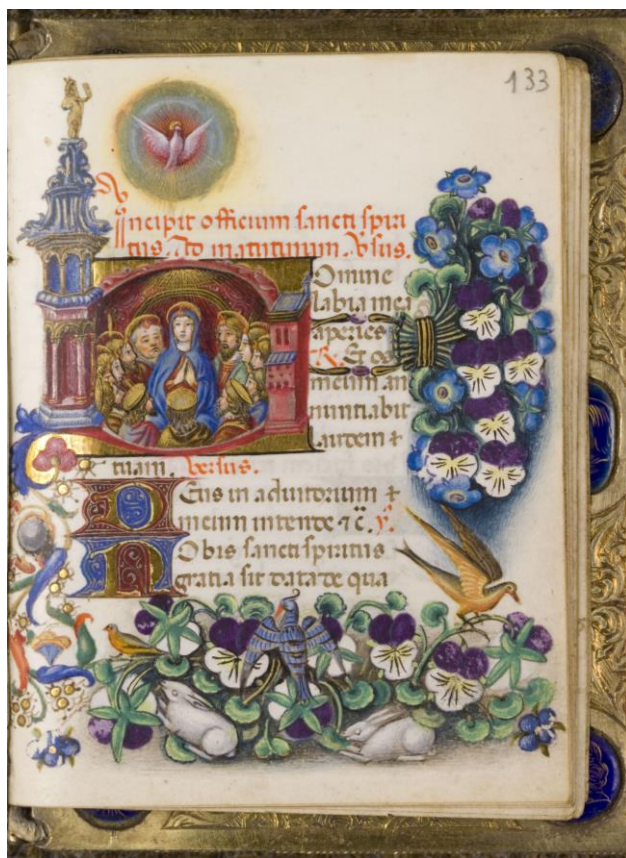 133
Incipit officium sancti spiri
tus. Ad matutinum. Versus.
Domine
labia mea
aperies
℟. Et os
meum an
nuntiabit
laudem t
tuam. Versus.
Deus in adiutorium t
meum intende ⁊ c̄. ℣.
Nobis sancti spiritus
gratia sit data de qua